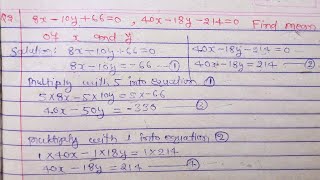 Q2. 8x - 10y + 66 = 0 , 40x - 18y - 214 = 0 Find mean
of x and y
Solution: 8x - 10y + 66 = 0
8x - 10y = -66 — ①
40x - 18y - 214 = 0
40x - 18y = 214 — ②
Multiply with 5 into equation ①
5 × 8x - 5 × 10y = 5 × -66
40x - 50y = -330 — ③
multiply with 1 into equation ②
1 × 40x - 1 × 18y = 1 × 214
40x - 18y = 214 — ④